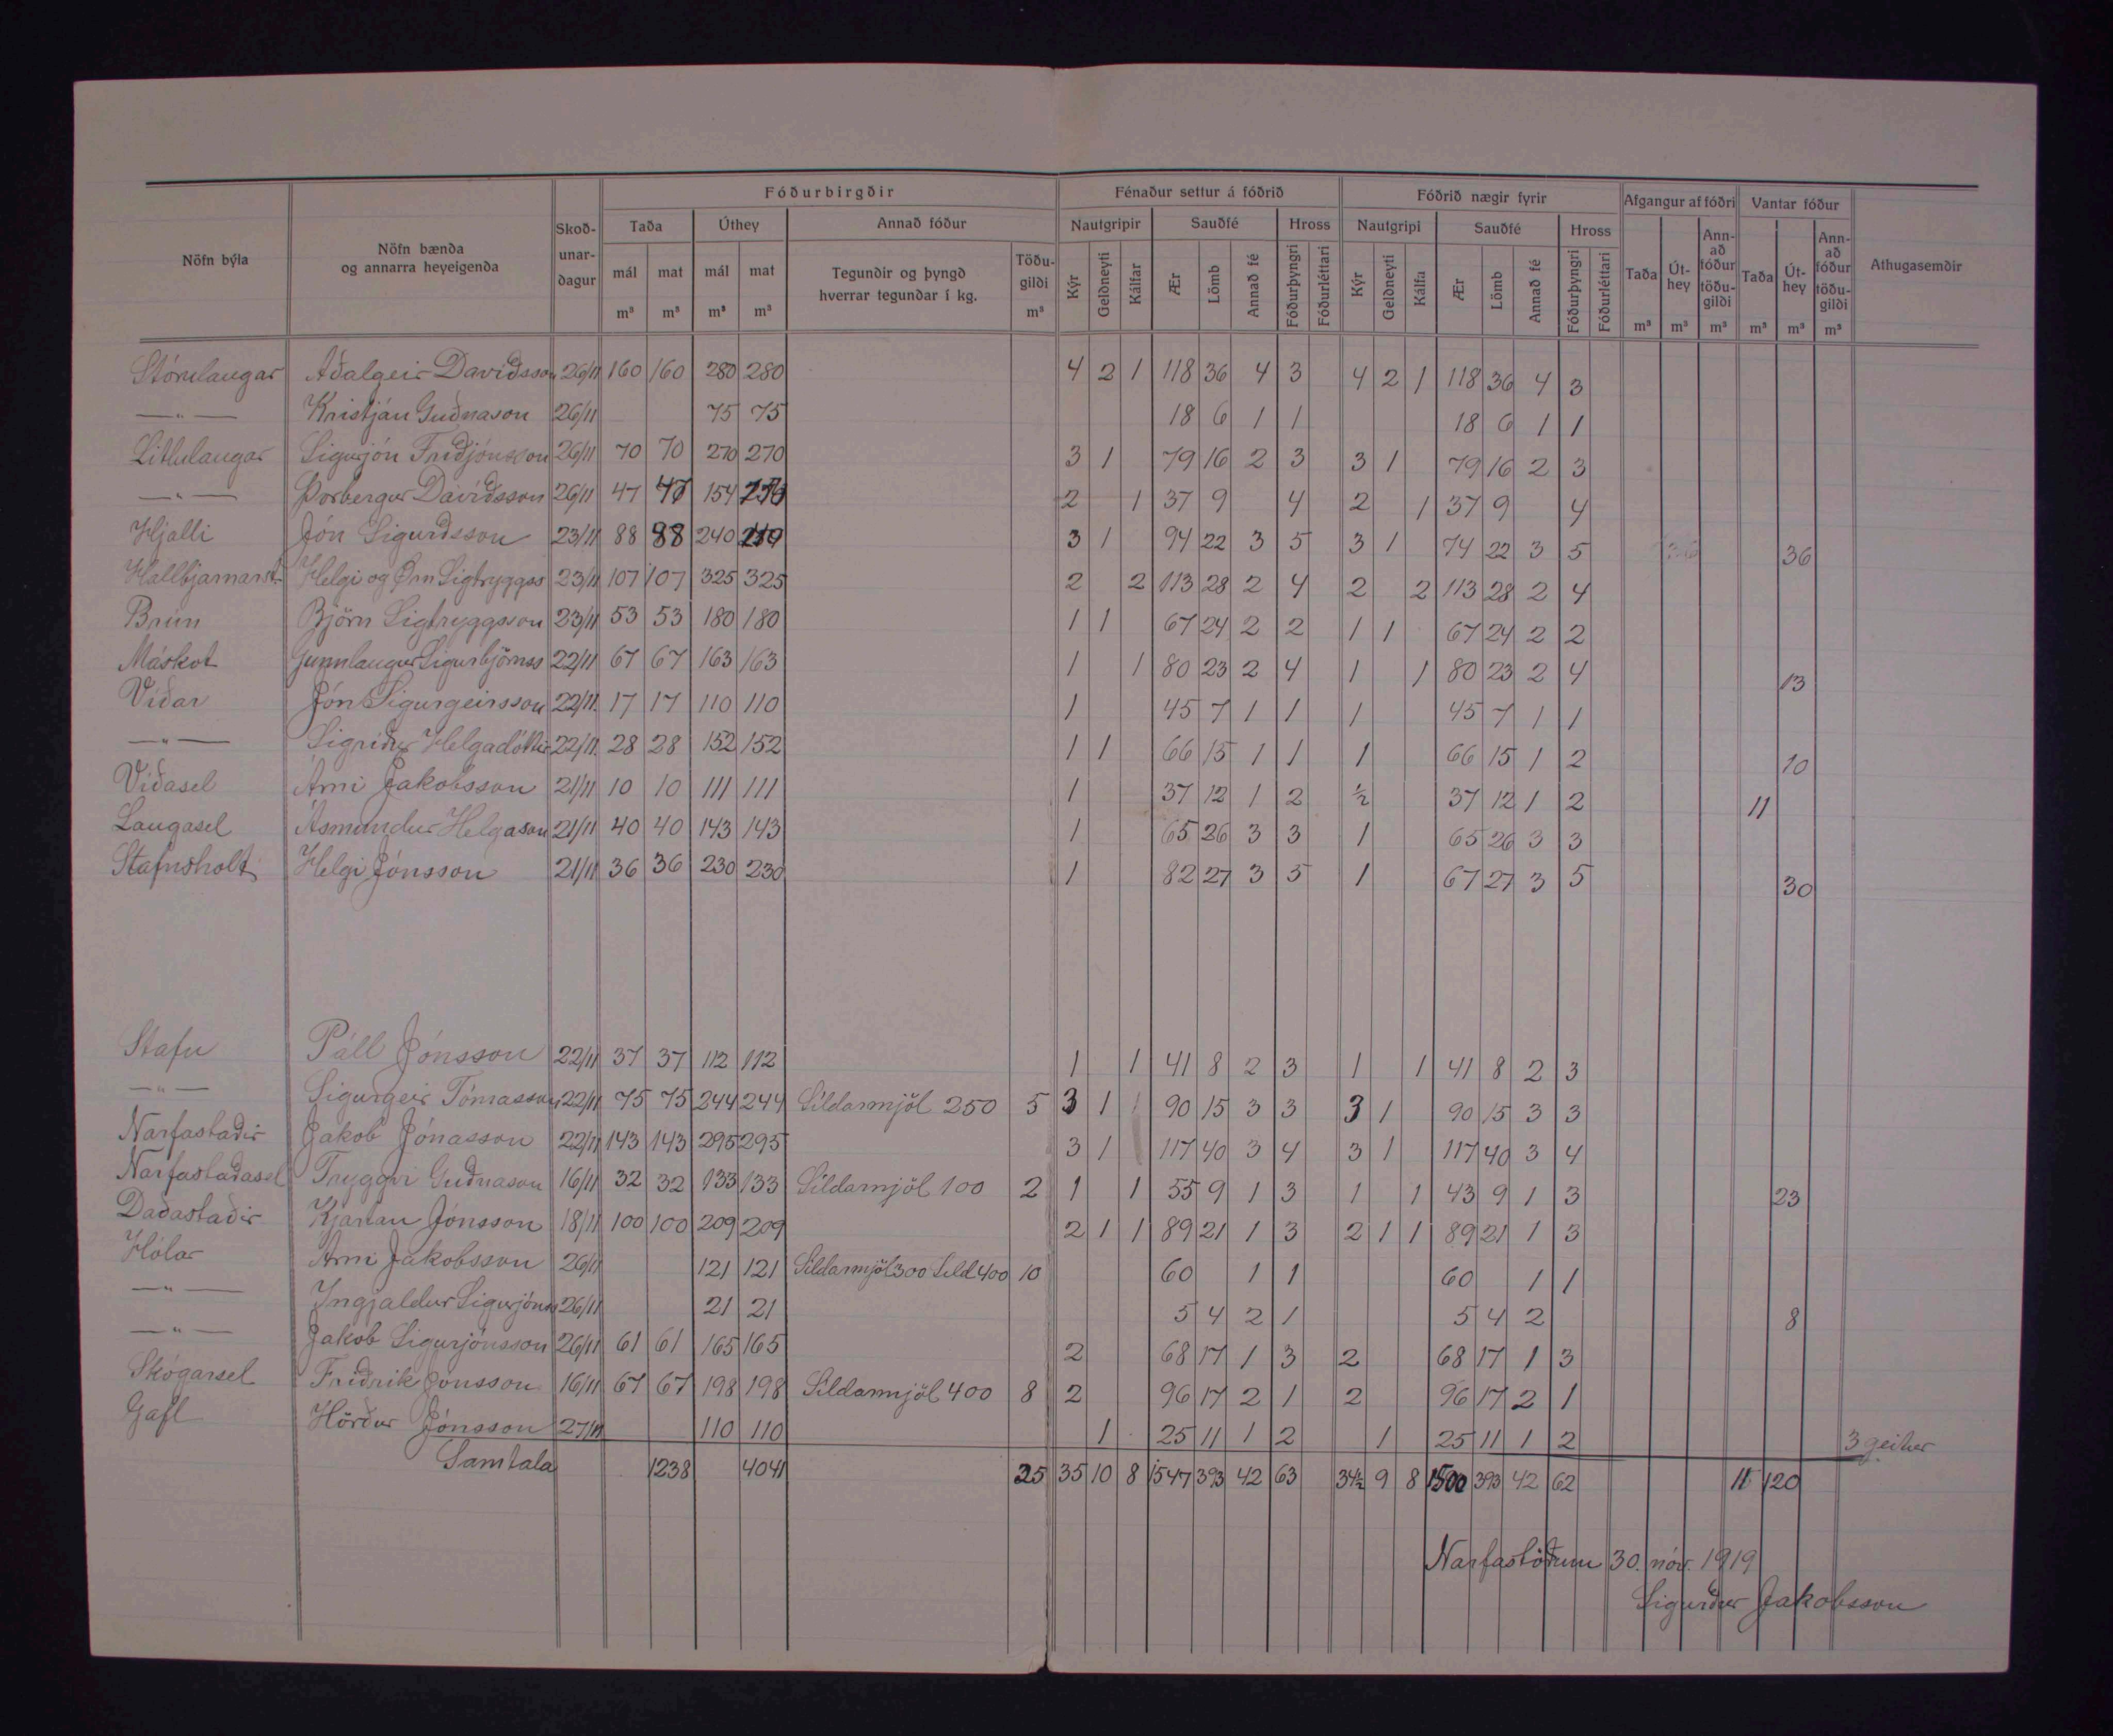 Fóðurbirgðir Fénaður settur á fóðrið Fóðrið nægir fyrir Afgangur af fóðri Vantar fóður
Nöfn býla Nöfn bænda og annarra heyeigenda Skoð-unar-dagur Taða Úthey Annað fóður Nautgripir Sauðfé Hross Nautgripi Sauðfé Hross Athugasemdir
mál m³ mat m³ mál m³ mat m³ Tegundir og þyngd hverrar tegundar í kg. Töðu-gildi m³ Kýr Geldneyti Kálfar Ær Lömb Annað fé Fóðurþyngri Fóðurléttari Kýr Geldneyti Kálfa Ær Lömb Annað fé Fóðurþyngri Fóðurléttari Taða m³ Út-hey m³ Ann-að fóður töðu-gildi m³ Taða m³ Út-hey m³ Ann-að fóður töðu-gildi m³
Stórulaugar Aðalgeir Davíðsson 26/11 160 160 280 280 4 2 1 118 36 4 3 4 2 1 118 36 4 3
—„— Kristján Guðnason 26/11 75 75 18 6 1 1 18 6 1 1
Litlulaugar Sigurjón Friðjónsson 26/11 70 70 270 270 3 1 79 16 2 3 3 1 79 16 2 3
—„— Þorbergur Davíðsson 26/11 47 47 154 2 1 37 9 4 2 1 37 9 4
Hjalli Jón Sigurðsson 23/11 88 88 240 3 1 94 22 3 5 3 1 74 22 3 5 36
Hallbjarnarst. Helgi og Örn Sigtryggss 23/11 107 107 325 325 2 2 113 28 2 4 2 2 113 28 2 4
Brún Björn Sigtryggsson 23/11 53 53 180 180 1 1 67 24 2 2 1 1 67 24 2 2
Máskot Gunnlaugur Sigurbjörnss 22/11 67 67 163 163 1 1 80 23 2 4 1 1 80 23 2 4 13
Víðar Jón Sigurgeirsson 22/11 17 17 110 110 1 45 7 1 1 1 45 7 1 1
—„— Sigríður Helgadóttir 22/11 28 28 152 152 1 1 66 15 1 1 1 66 15 1 2 10
Víðasel Árni Jakobsson 21/11 10 10 111 111 1 37 12 1 2 ½ 37 12 1 2 11
Laugasel Ásmundur Helgason 21/11 40 40 143 143 1 65 26 3 3 1 65 26 3 3
Stafnsholt Helgi Jónsson 21/11 36 36 230 230 1 82 27 3 5 1 67 27 3 5 30
Stafn Páll Jónsson 22/11 37 37 112 112 1 1 41 8 2 3 1 1 41 8 2 3
—„— Sigurgeir Tómasson 22/11 75 75 244 244 Síldarmjöl 250 5 3 1 90 15 3 3 3 1 90 15 3 3
Narfastaðir Jakob Jónasson 22/11 143 143 295 295 3 1 117 40 3 4 3 1 117 40 3 4
Narfastaðasel Tryggvi Guðnason 16/11 32 32 133 133 Síldarmjöl 100 2 1 1 55 9 1 3 1 1 43 9 1 3 23
Daðastaðir Kjartan Jónsson 18/11 100 100 209 209 2 1 1 89 21 1 3 2 1 1 89 21 1 3
Hólar Árni Jakobsson 26/11 121 121 Síldarmjöl 300 Síld 400 10 60 1 1 60 1 1
—„— Ingjaldur Sigurjónss 26/11 21 21 5 4 2 1 5 4 2 8
—„— Jakob Sigurjónsson 26/11 61 61 165 165 2 68 17 1 3 2 68 17 1 3
Skógarsel Friðrik Jónsson 16/11 67 67 198 198 Síldarmjöl 400 8 2 96 17 2 1 2 96 17 2 1
Gafl Hörður Jónsson 27/11 110 110 1 25 11 1 2 1 25 11 1 2 3 geitur
Samtala 1238 4041 25 35 10 8 1547 393 42 63 34½ 9 8 1500 393 42 62 11 120
Narfastöðum 30. nóv. 1919
Sigurður Jakobsson